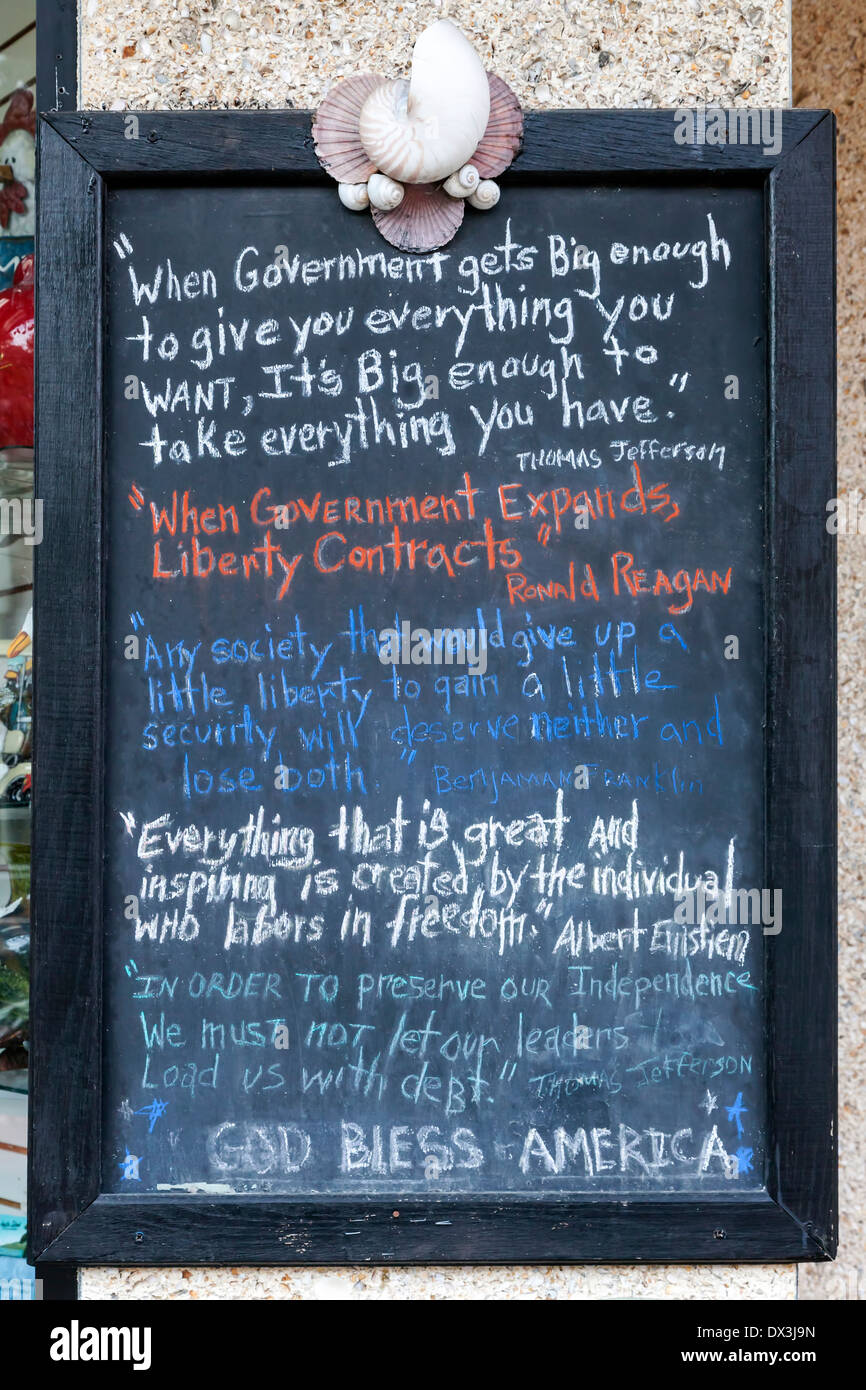 "When Government gets Big enough
to give you everything you
WANT, It's Big enough to
take everything you have."
THOMAS Jefferson
"When Government Expands,
Liberty Contracts"
Ronald Reagan
"Any society that would give up a
little liberty to gain a little
security will deserve neither and
lose both." Benjaman Franklin
"Everything that is great and
inspiring is created by the individual
who labors in freedom." Albert Einstiem
"IN ORDER TO preserve our Independence
We must not let our leaders
Load us with debt." THOMAS Jefferson
GOD BLESS AMERICA
alamy
Image ID: DX3J9N
www.alamy.com